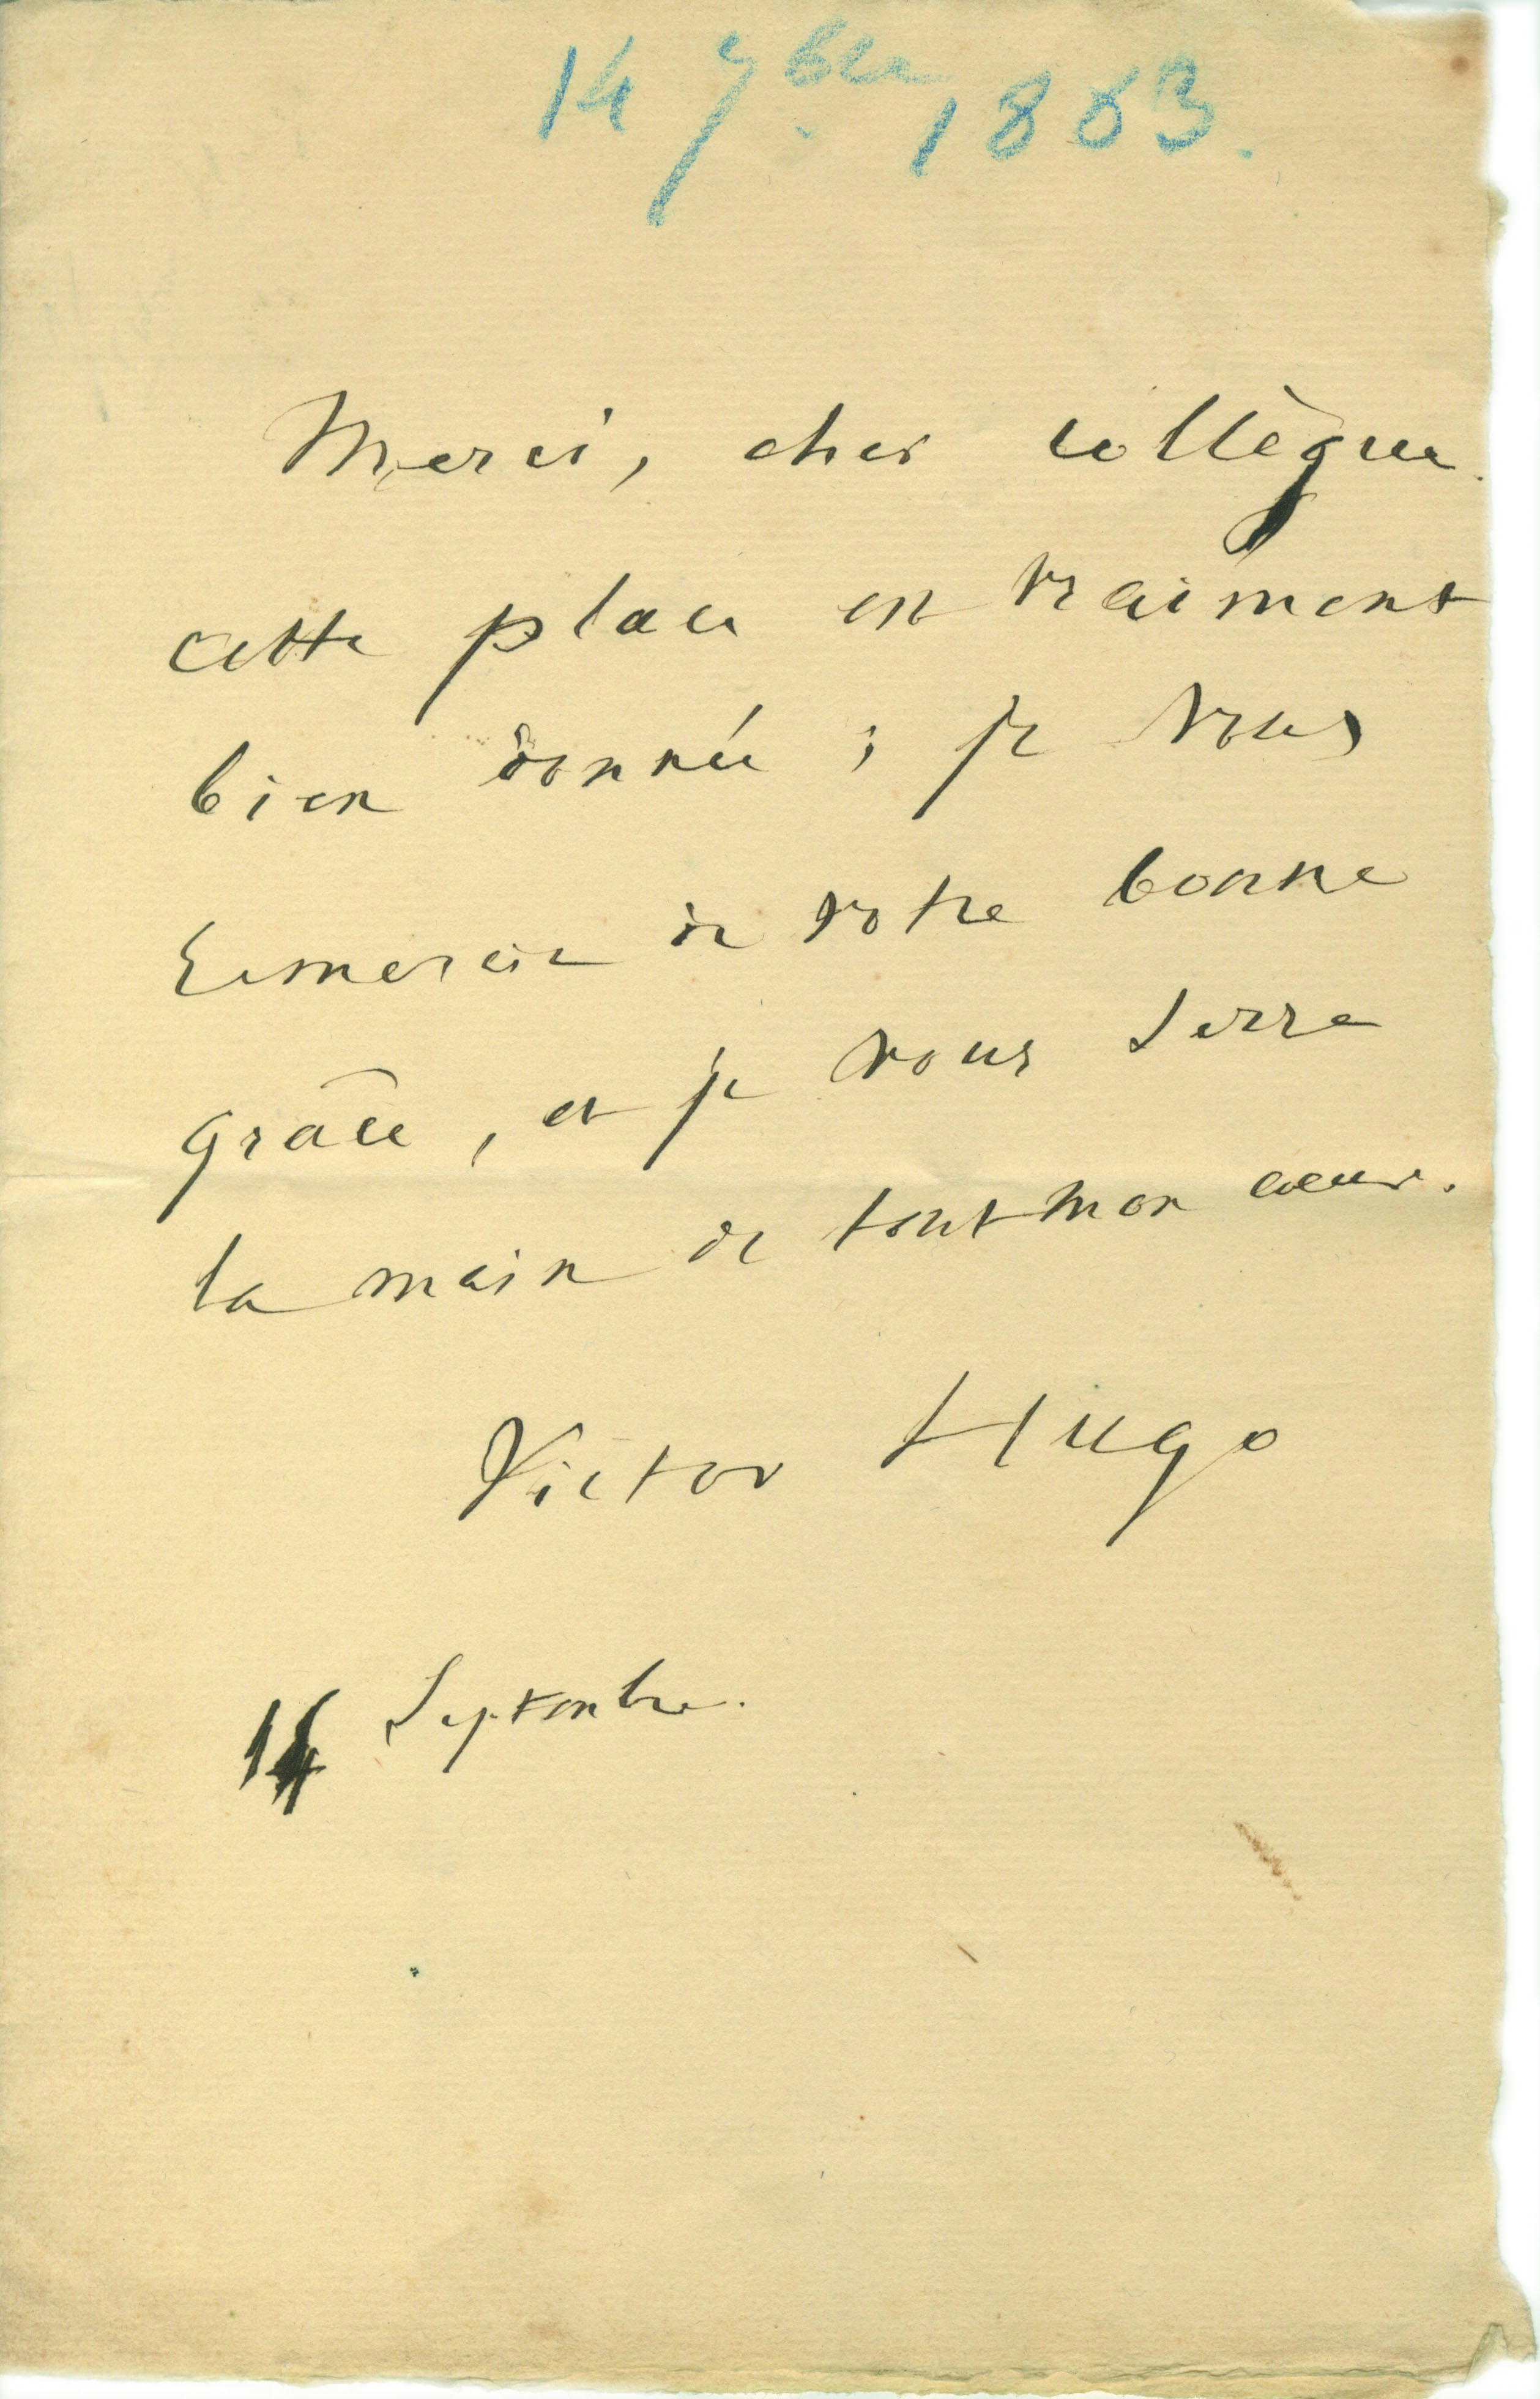 14 7bre 1883.
Merci, cher collègue.
cette place est vraiment
bien donnée ; je vous
remercie de votre bonne
grâce, et je vous serre
la main de tout mon cœur.
Victor Hugo
14 Septembre.